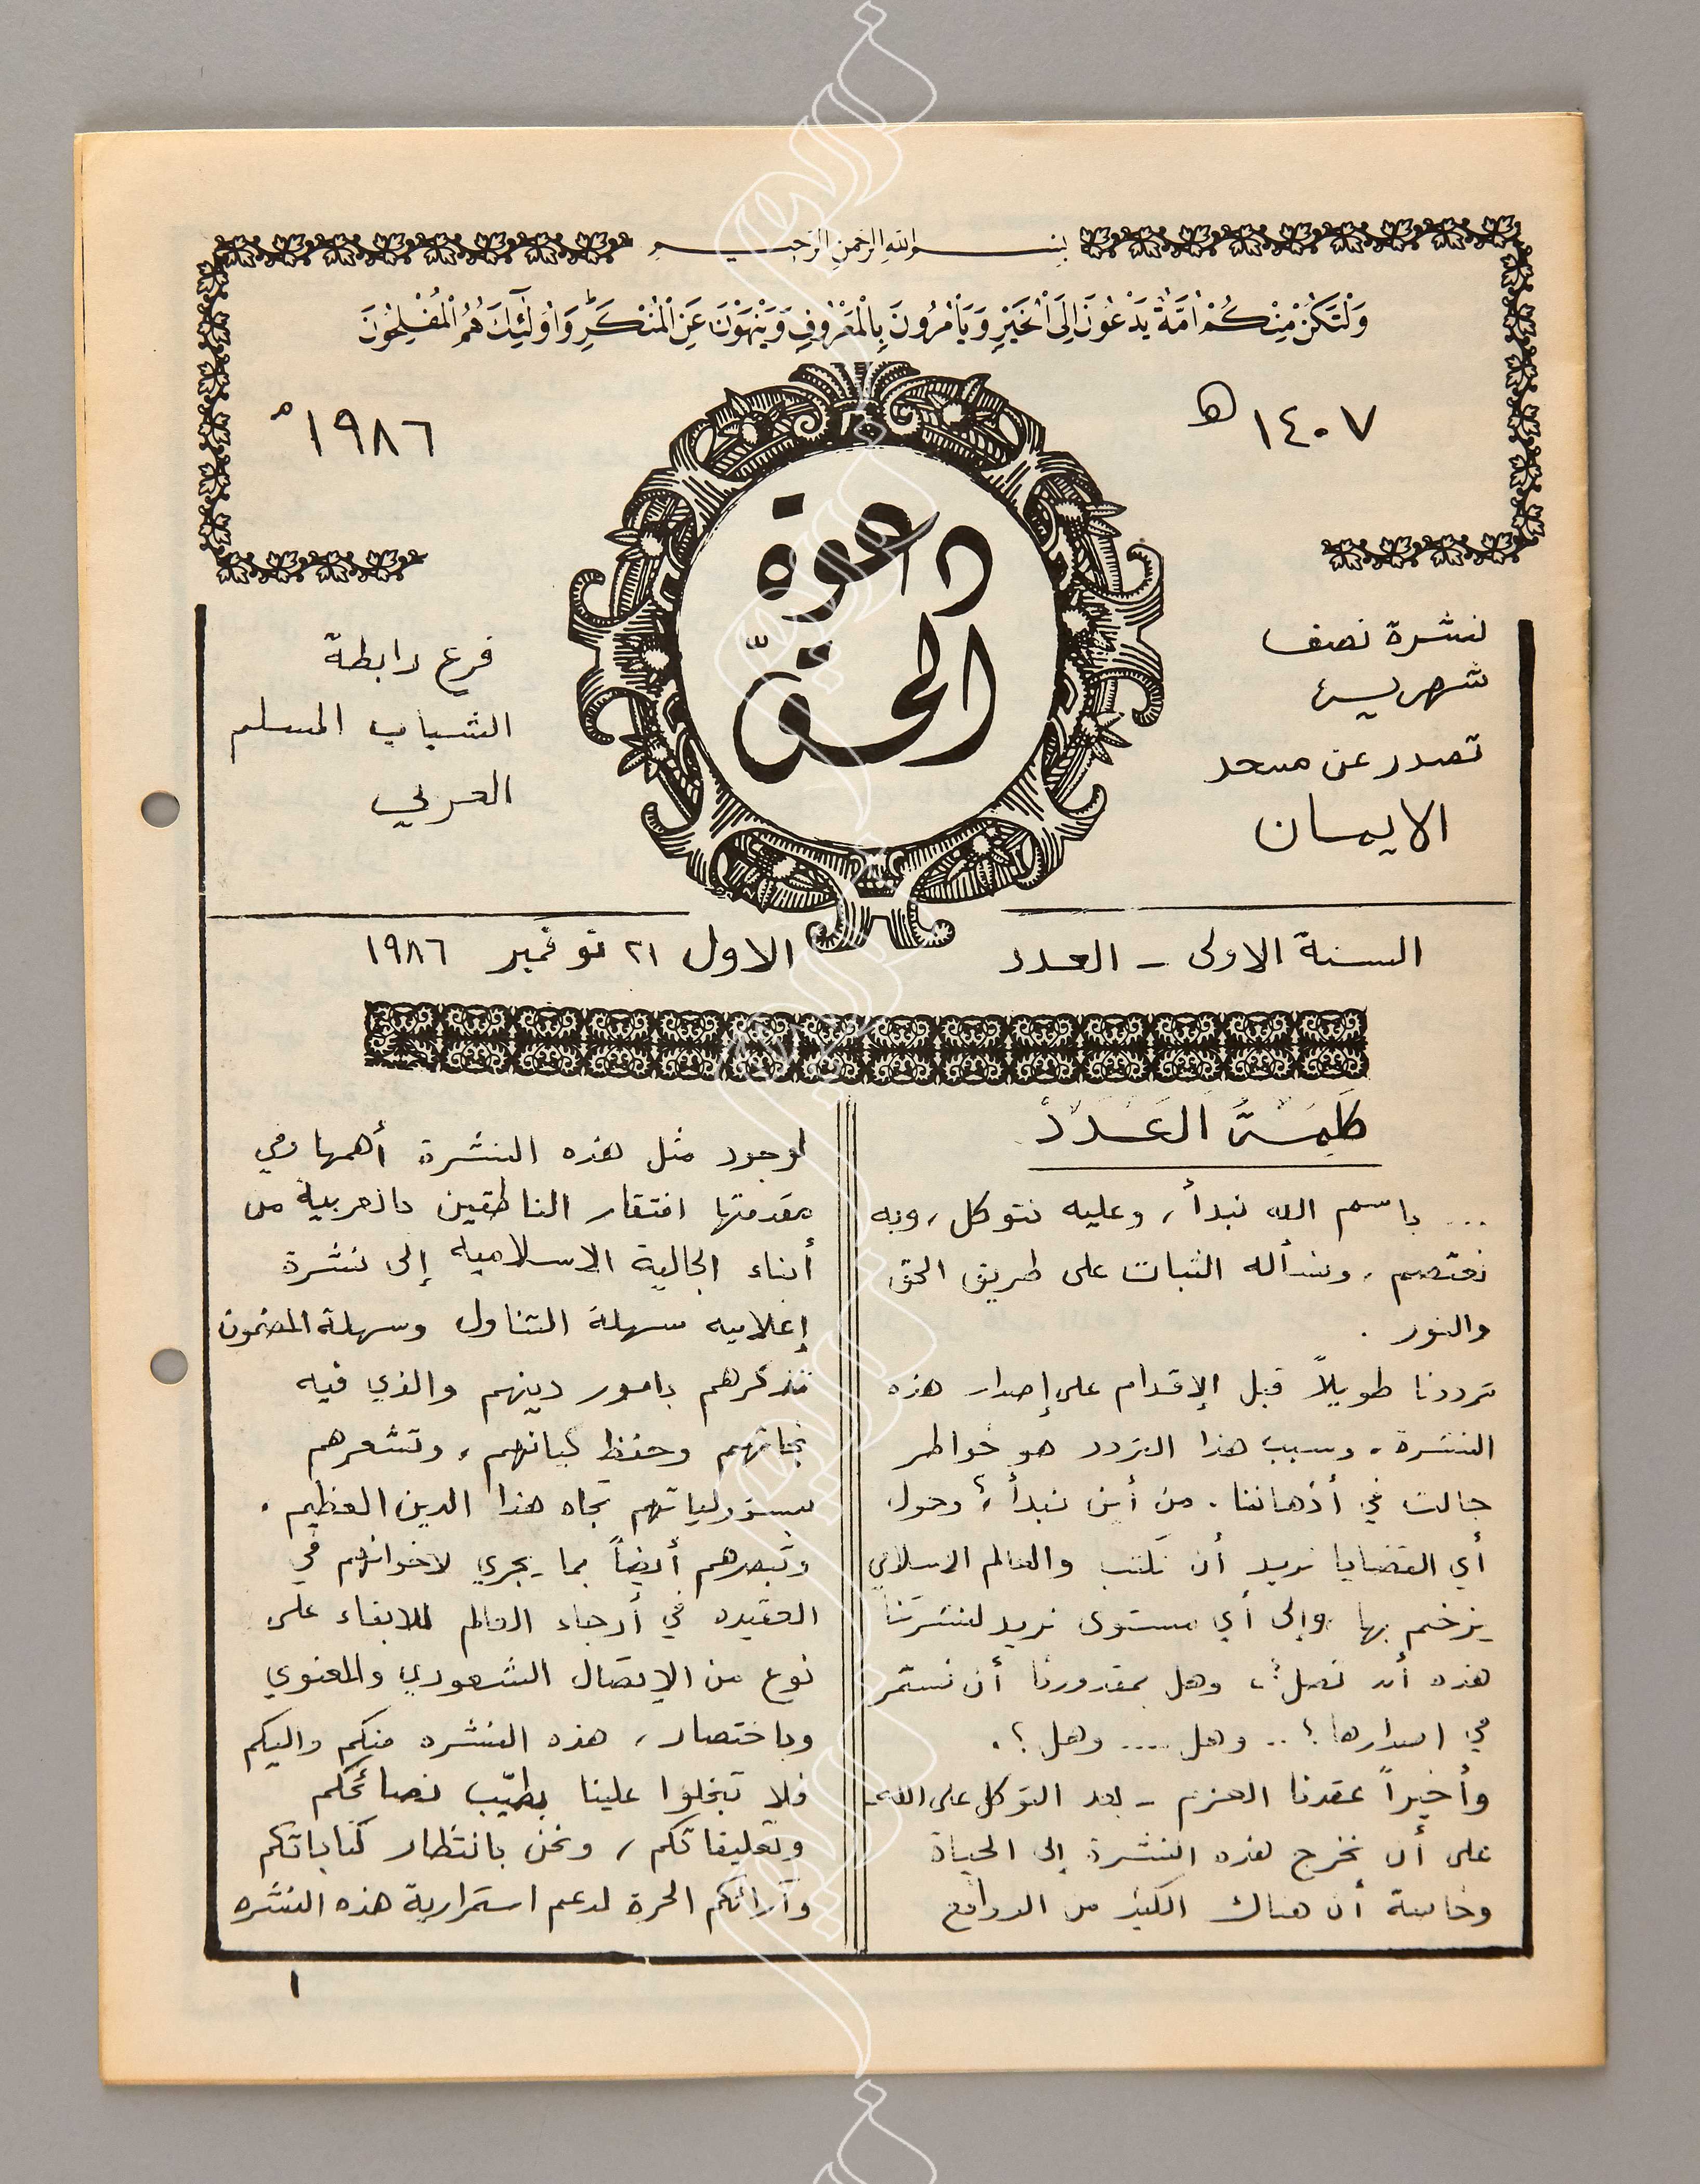 بسم الله الرحمن الرحيم
وَلْتَكُنْ مِنْكُمْ أُمَّةٌ يَدْعُونَ إِلَى الْخَيْرِ وَيَأْمُرُونَ بِالْمَعْرُوفِ وَيَنْهَوْنَ عَنِ الْمُنْكَرِ وَأُولَٰئِكَ هُمُ الْمُفْلِحُونَ
١٤٠٧ هـ
١٩٨٦ م
دعوة
الحقّ
نشرة نصف
شهرية
تصدر عن مسجد
الايمان
فرع رابطة
الشباب المسلم
العربي
السنة الاولى - العدد الاول ٢١ نوفمبر ١٩٨٦
كَلِمَةُ العَدَدْ
... باسم الله نبدأ، وعليه نتوكل، وبه
نعتصم، ونسأله الثبات على طريق الحق
والنور .
ترددنا طويلاً قبل الإقدام على إصدار هذه
النشرة، وسبب هذا التردد هو خواطر
جالت في أذهاننا. من أين نبدأ؟ وحول
أي القضايا نريد أن نكتب والعالم الاسلامي
يزخم بها وإلى أي مستوى نريد لنشرتنا
هذه أن تصل؟، وهل بمقدورنا أن نستمر
في اصدارها؟ .. وهل .... وهل؟.
وأخيراً عقدنا العزم - بعد التوكل على الله -
على أن نخرج هذه النشرة إلى الحياة
وخاصة أن هناك الكثير من الدوافع
لوجود مثل هذه النشرة أهمها وفي
مقدمتها افتقار الناطقين بالعربية من
أبناء الجالية الاسلاميه إلى نشرة
إعلاميه سهلة التناول وسهلة المضمون
تذكرهم بامور دينهم والذي فيه
نجاتهم وحفظ كيانهم، وتشعرهم
بمسؤولياتهم تجاه هذا الدين العظيم .
وتبصرهم أيضاً بما يجري لاخوانهم في
العقيده في أرجاء العالم للابقاء على
نوع من الإتصال الشعوري والمعنوي
وباختصار، هذه النشره منكم واليكم
فلا تبخلوا علينا بطيّب نصائحكم
وتعليقاتكم، ونحن بانتظار كتاباتكم
وآرائكم الحرة لدعم استمرارية هذه النشره
١